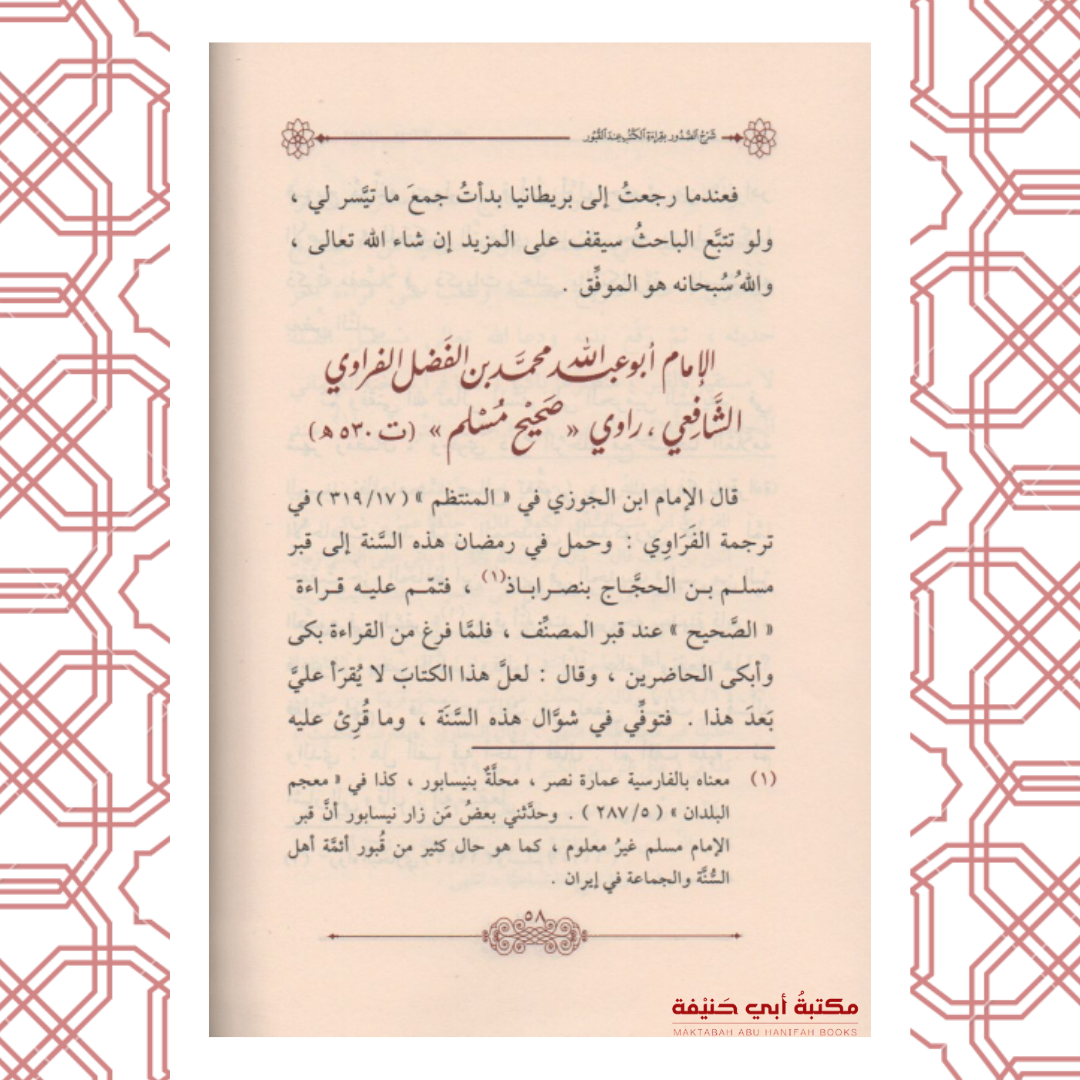 شَرْحُ الصُّدُور بقِرَاءَةِ الكُتُبِ عِندَ القُبُور
فعندما رجعتُ إلى بريطانيا بدأتُ جمعَ ما تيَّسر لي ،
ولو تتبَّع الباحثُ سيقف على المزيد إن شاء الله تعالى ،
واللهُ سُبحانه هو الموفِّق .
الإمام أبو عبد الله محمَّد بن الفَضل الفراوي
الشَّافِعي ، راوي « صَحيْح مُسْلم » (ت ٥٣٠ هـ)
قال الإمام ابن الجوزي في « المنتظم » ( ٣١٩/١٧ ) في
ترجمة الفَرَاوِي : وحمل في رمضان هذه السَّنة إلى قبر
مسلم بن الحجَّاج بنصراباذ(١) ، فتمّم عليه قراءة
« الصَّحيح » عند قبر المصنِّف ، فلمَّا فرغ من القراءة بكى
وأبكى الحاضرين ، وقال : لعلَّ هذا الكتابَ لا يُقرَأ عليَّ
بَعدَ هذا . فتوفِّي في شوَّال هذه السَّنَة ، وما قُرِئ عليه
(١) معناه بالفارسية عمارة نصر ، محلَّةٌ بنيسابور ، كذا في « معجم
البلدان » ( ٢٨٧/٥ ) . وحدَّثني بعضُ مَن زار نيسابور أنَّ قبر
الإمام مسلم غيرُ معلوم ، كما هو حال كثير من قُبور أئمَّة أهل
السُّنَّة والجماعة في إيران .
٥٨
مكتبةُ أبي حَنيْفة
MAKTABAH ABU HANIFAH BOOKS